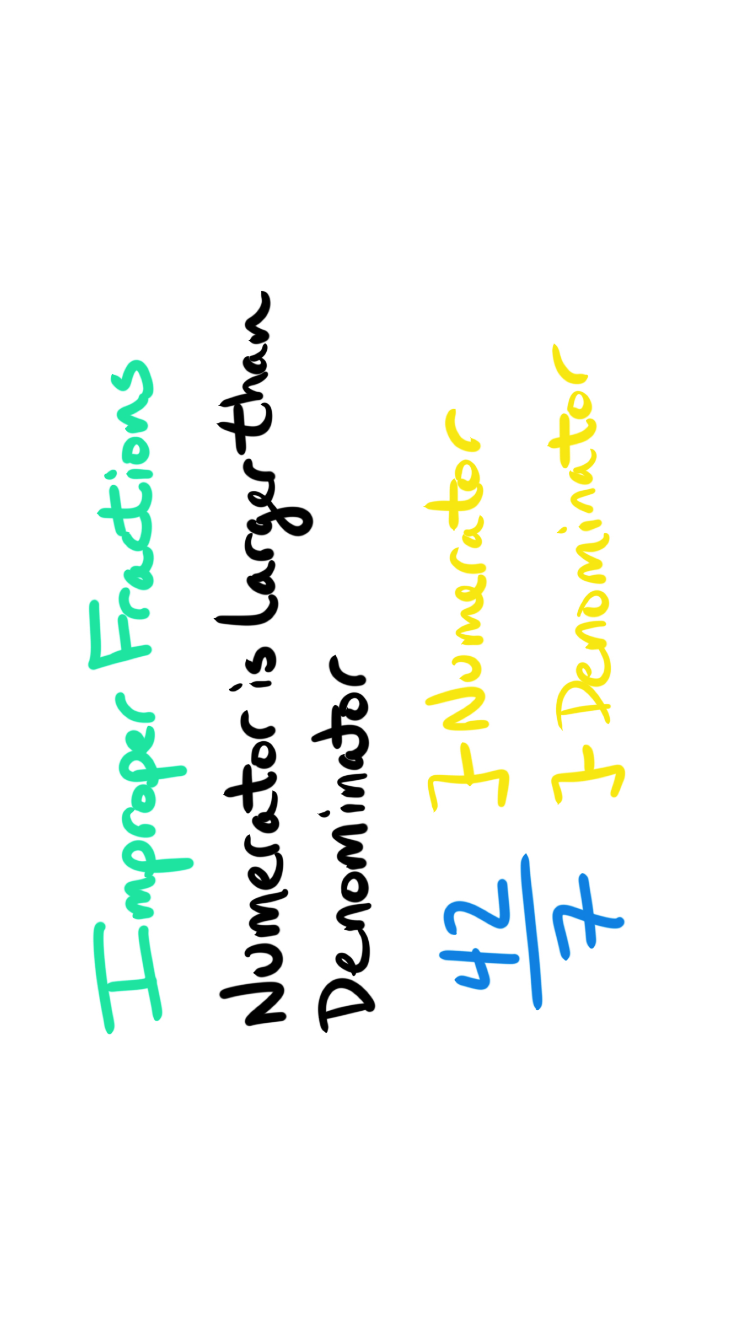 Improper Fractions
Numerator is Larger than
Denominator
42 } Numerator
7 } Denominator